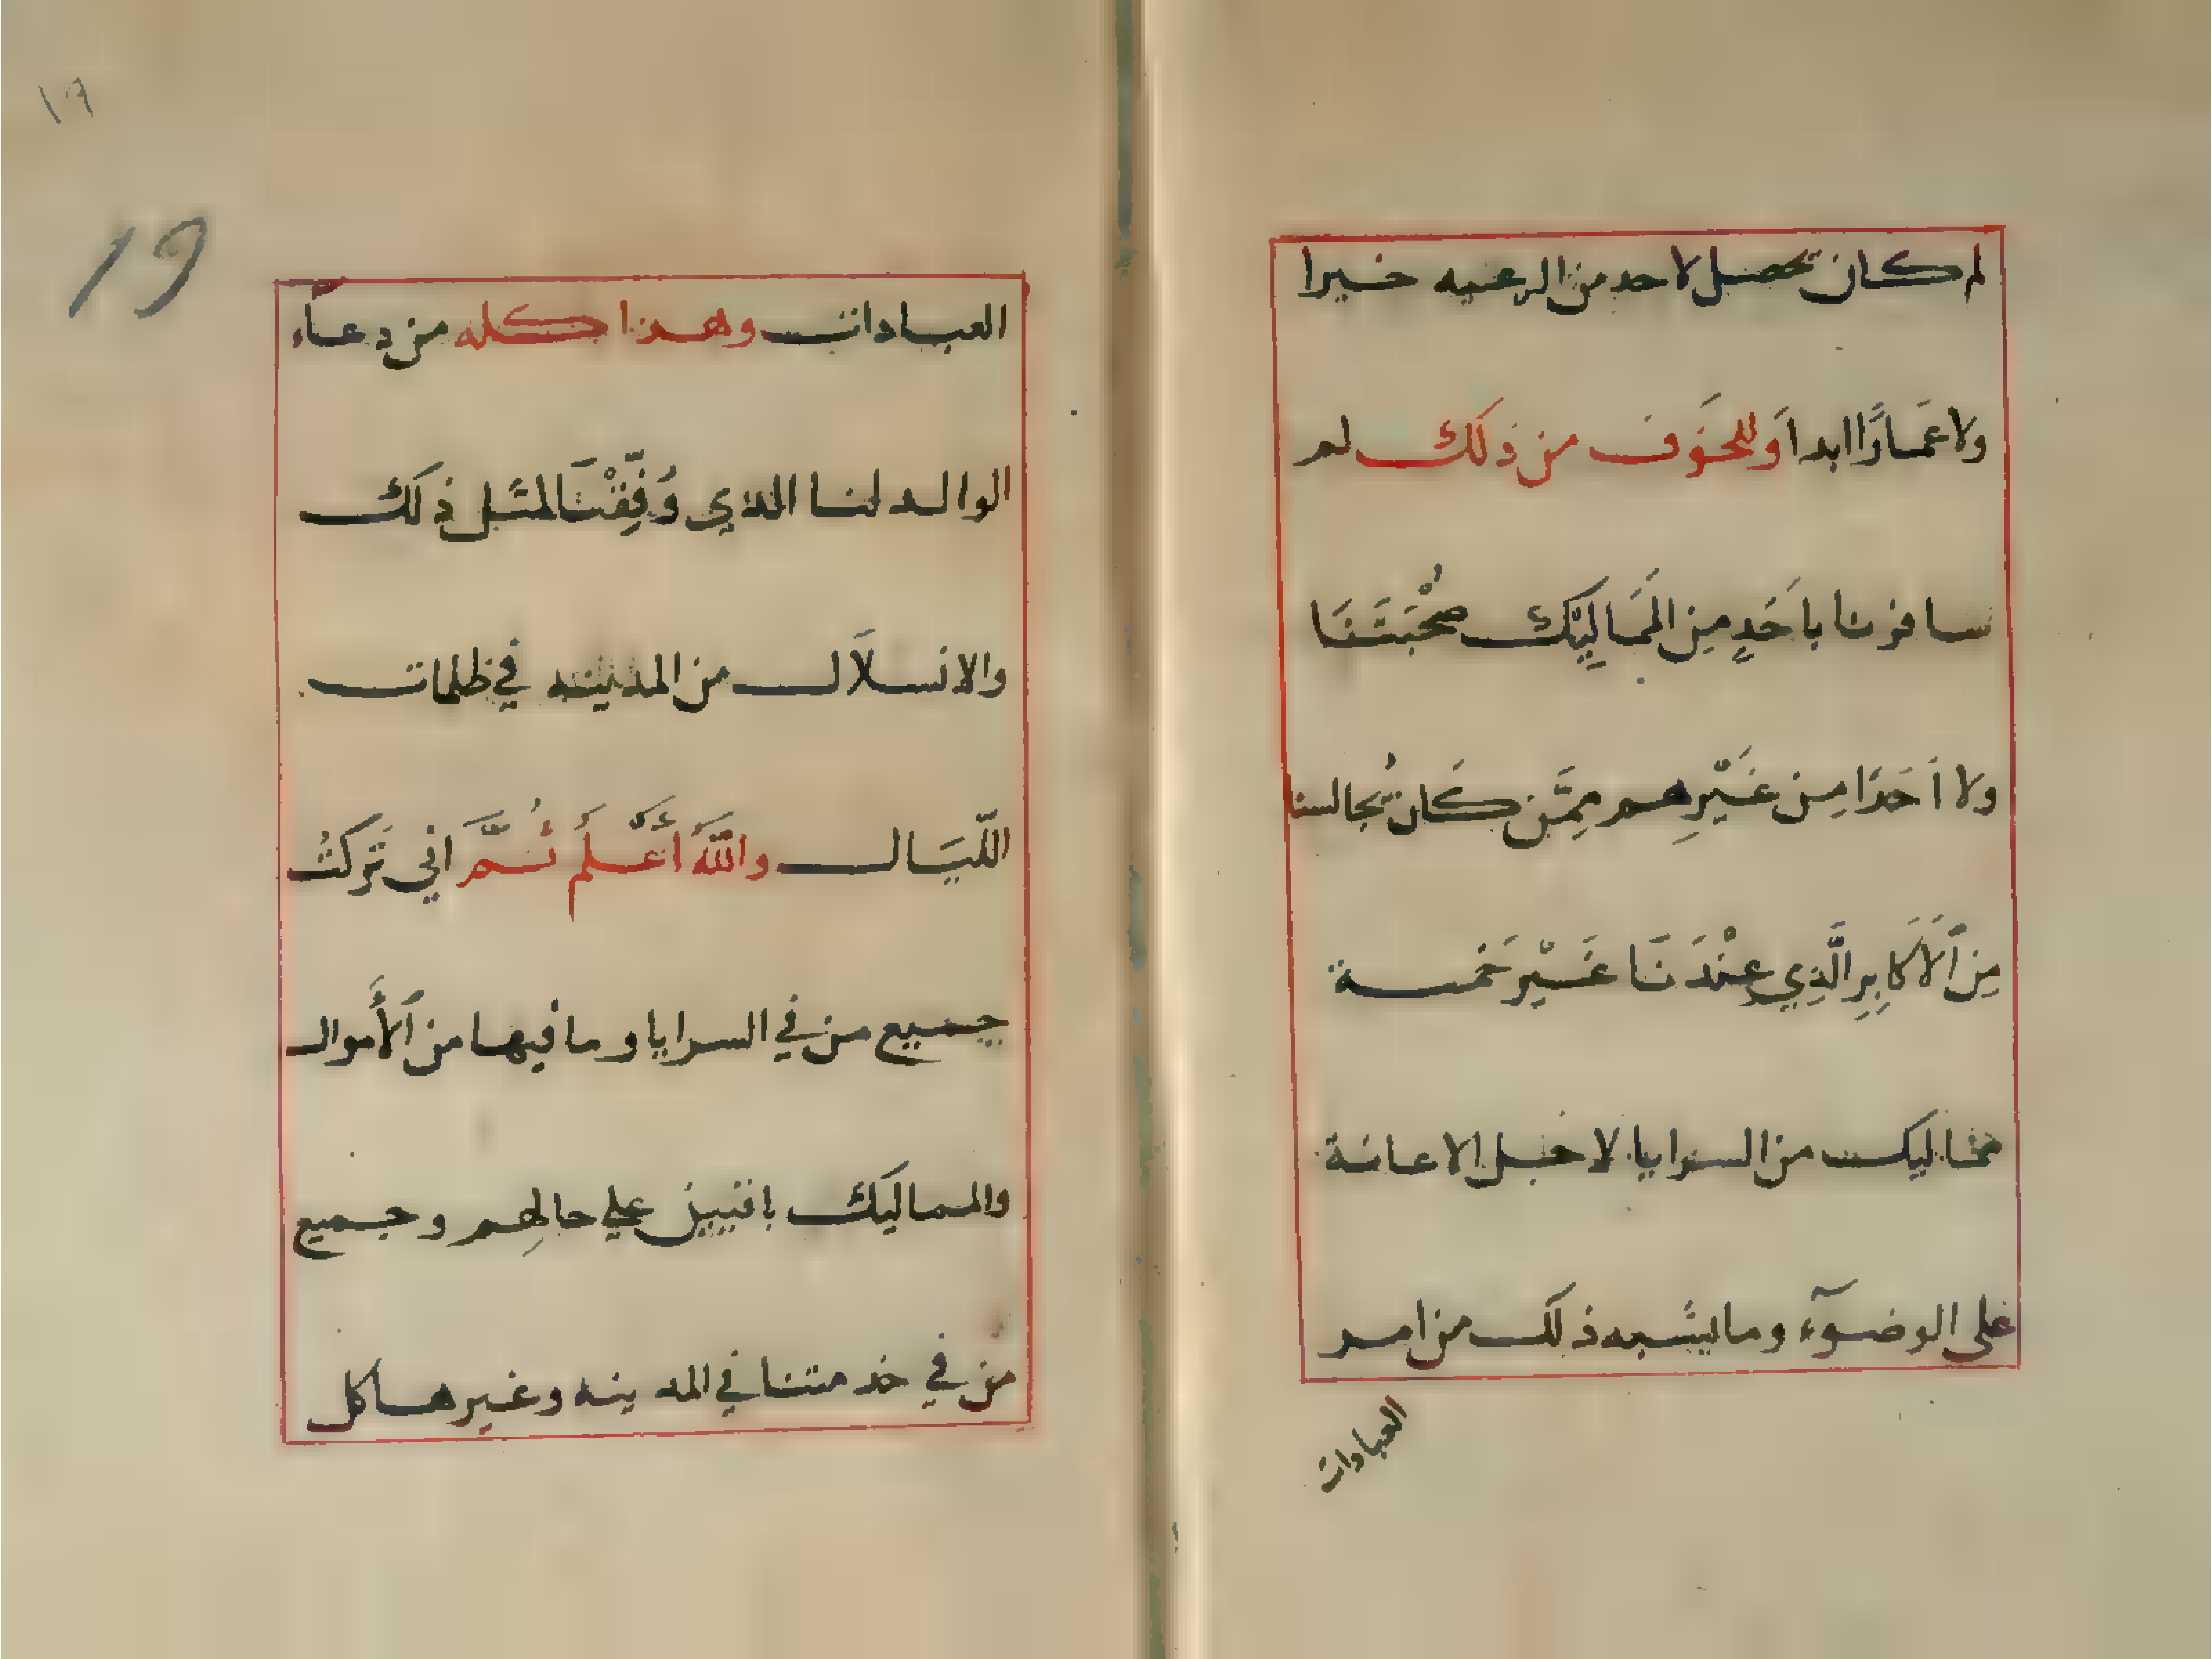 لم كان تحصل لاحد من الرعيه خيرا
ولا عَمَارًا ابدا وَللخَوف من ذلَك لم
سافرنا باَحَدٍ مِن المَمَالِيْك صُحْبَتَنَا
ولا اَحَدًا مِن غَيْرِهم مِمَّن كَان يُجالسنا
مِن اَلاَكَابِرِ الَّذِي عِنْدَنَا غَيْر خَمسة
مماليك من السرايا لاجل الاعانة
على الوضوٓء وما يشبه ذلك من امر
العبادات
١٩
19
العبادات وهذا كله من دعاء
الوالد لنا الذي وُفِّقْنَا لمثل ذلك
والانسلاَل من المدينه في ظلمات
اللّيَال واللّهُ أَعْلَم ثُمَّ اني تَركتُ
جميع من في السرايا وما فيها من اَلأَموال
والمماليَك باقيين علي حالهِم وجميع
من في خدمتنا في المدينه وغيرها كل